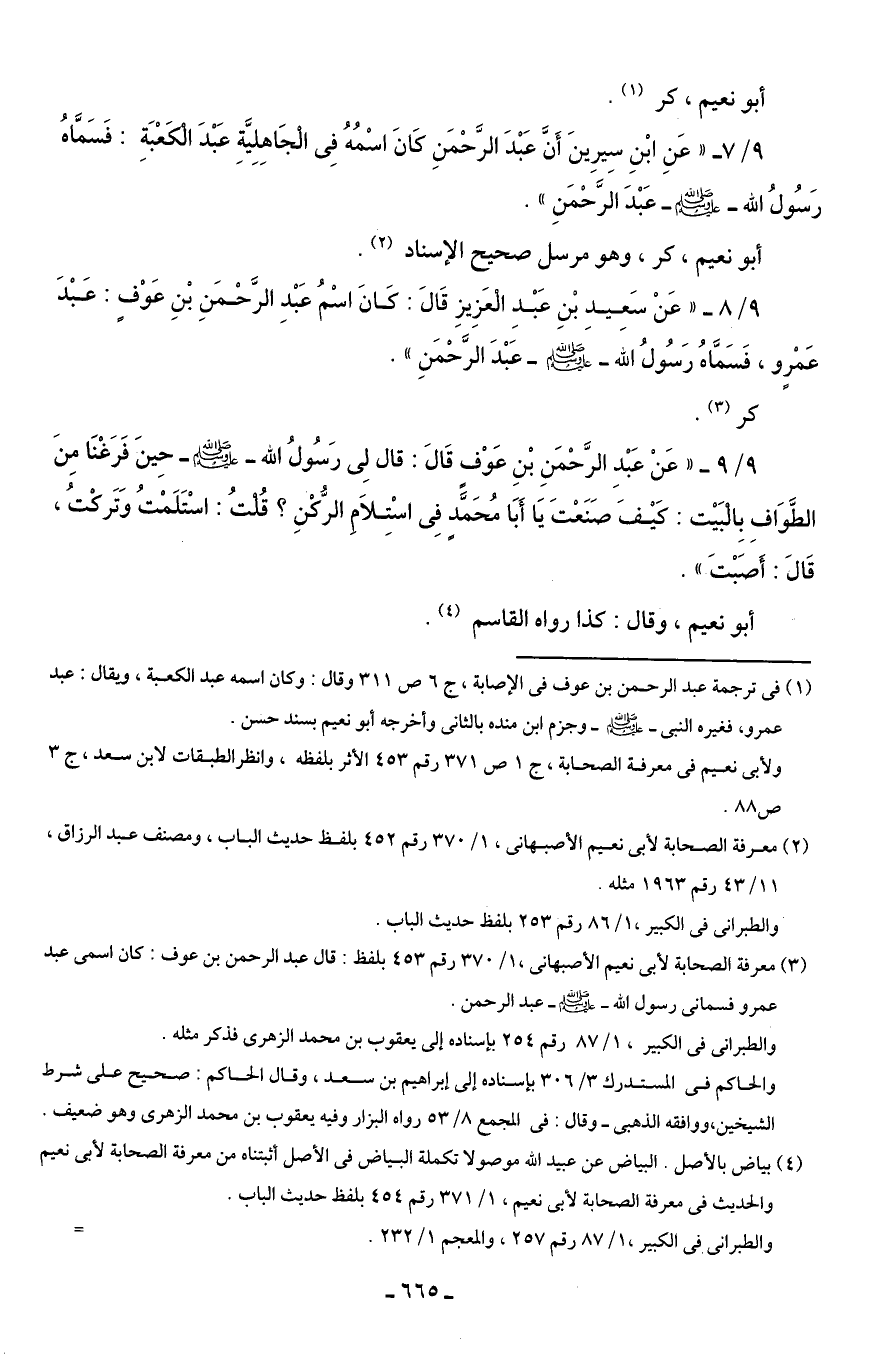 أبو نعيم ، كر (١) .
٩/ ٧ـ « عَنِ ابْنِ سِيرِينَ أَنَّ عَبْدَ الرَّحْمَنِ كَانَ اسْمُهُ فِى الْجَاهِلِيَّةِ عَبْدَ الْكَعْبَةِ : فَسَمَّاهُ
رَسُولُ الله ـ ﷺ ـ عَبْدَ الرَّحْمَنِ » .
أبو نعيم ، كر ، وهو مرسل صحيح الإسناد (٢) .
٩/ ٨ ـ « عَنْ سَعِيدِ بْنِ عَبْدِ الْعَزِيزِ قَالَ : كَانَ اسْمُ عَبْدِ الرَّحْمَنِ بْنِ عَوْفٍ : عَبْدَ
عَمْرٍو ، فَسَمَّاهُ رَسُولُ الله ـ ﷺ ـ عَبْدَ الرَّحْمَنِ » .
كر (٣) .
٩/ ٩ ـ « عَنْ عَبْدِ الرَّحْمَنِ بْنِ عَوْفٍ قَالَ : قال لِى رَسُولُ الله ـ ﷺ ـ حِينَ فَرَغْنَا مِنَ
الطَّوَافِ بِالْبَيْتِ : كَيْفَ صَنَعْتَ يَا أَبَا مُحَمَّدٍ فِى اسْتِلاَمِ الرُّكْنِ ؟ قُلْتُ : اسْتَلَمْتُ وَتَرَكْتُ ،
قَالَ : أَصَبْتَ » .
أبو نعيم ، وقال : كذا رواه القاسم (٤) .
(١) فى ترجمة عبد الرحمن بن عوف فى الإصابة ، ج ٦ ص ٣١١ وقال : وكان اسمه عبد الكعبة ، ويقال : عبد
عمرو، فغيره النبى ـ ﷺ ـ وجزم ابن منده بالثانى وأخرجه أبو نعيم بسند حسن .
ولأبى نعيم فى معرفة الصحابة ، ج ١ ص ٣٧١ رقم ٤٥٣ الأثر بلفظه ، وانظر الطبقات لابن سعد ، ج ٣
ص٨٨ .
(٢) معرفة الصحابة لأبى نعيم الأصبهانى ، ١/ ٣٧٠ رقم ٤٥٢ بلفظ حديث الباب ، ومصنف عبد الرزاق ،
١١/ ٤٣ رقم ١٩٦٣ مثله .
والطبرانى فى الكبير ،١/ ٨٦ رقم ٢٥٣ بلفظ حديث الباب .
(٣) معرفة الصحابة لأبى نعيم الأصبهانى ،١/ ٣٧٠ رقم ٤٥٣ بلفظ : قال عبد الرحمن بن عوف : كان اسمى عبد
عمرو فسمانى رسول الله ـ ﷺ ـ عبد الرحمن .
والطبرانى فى الكبير ، ١/ ٨٧ رقم ٢٥٤ بإسناده إلى يعقوب بن محمد الزهرى فذكر مثله .
والحاكم فى المستدرك ٣/ ٣٠٦ بإسناده إلى إبراهيم بن سعد ، وقال الحاكم : صحيح على شرط
الشيخين،ووافقه الذهبى ـ وقال : فى المجمع ٨/ ٥٣ رواه البزار وفيه يعقوب بن محمد الزهرى وهو ضعيف .
(٤) بياض بالأصل . البياض عن عبيد الله موصولا تكملة البياض فى الأصل أثبتناه من معرفة الصحابة لأبى نعيم
والحديث فى معرفة الصحابة لأبى نعيم ، ١/ ٣٧١ رقم ٤٥٤ بلفظ حديث الباب .
والطبرانى فى الكبير ،١/ ٨٧ رقم ٢٥٧ ، والمعجم ١/ ٢٣٢ .
=
ـ ٦٦٥ ـ